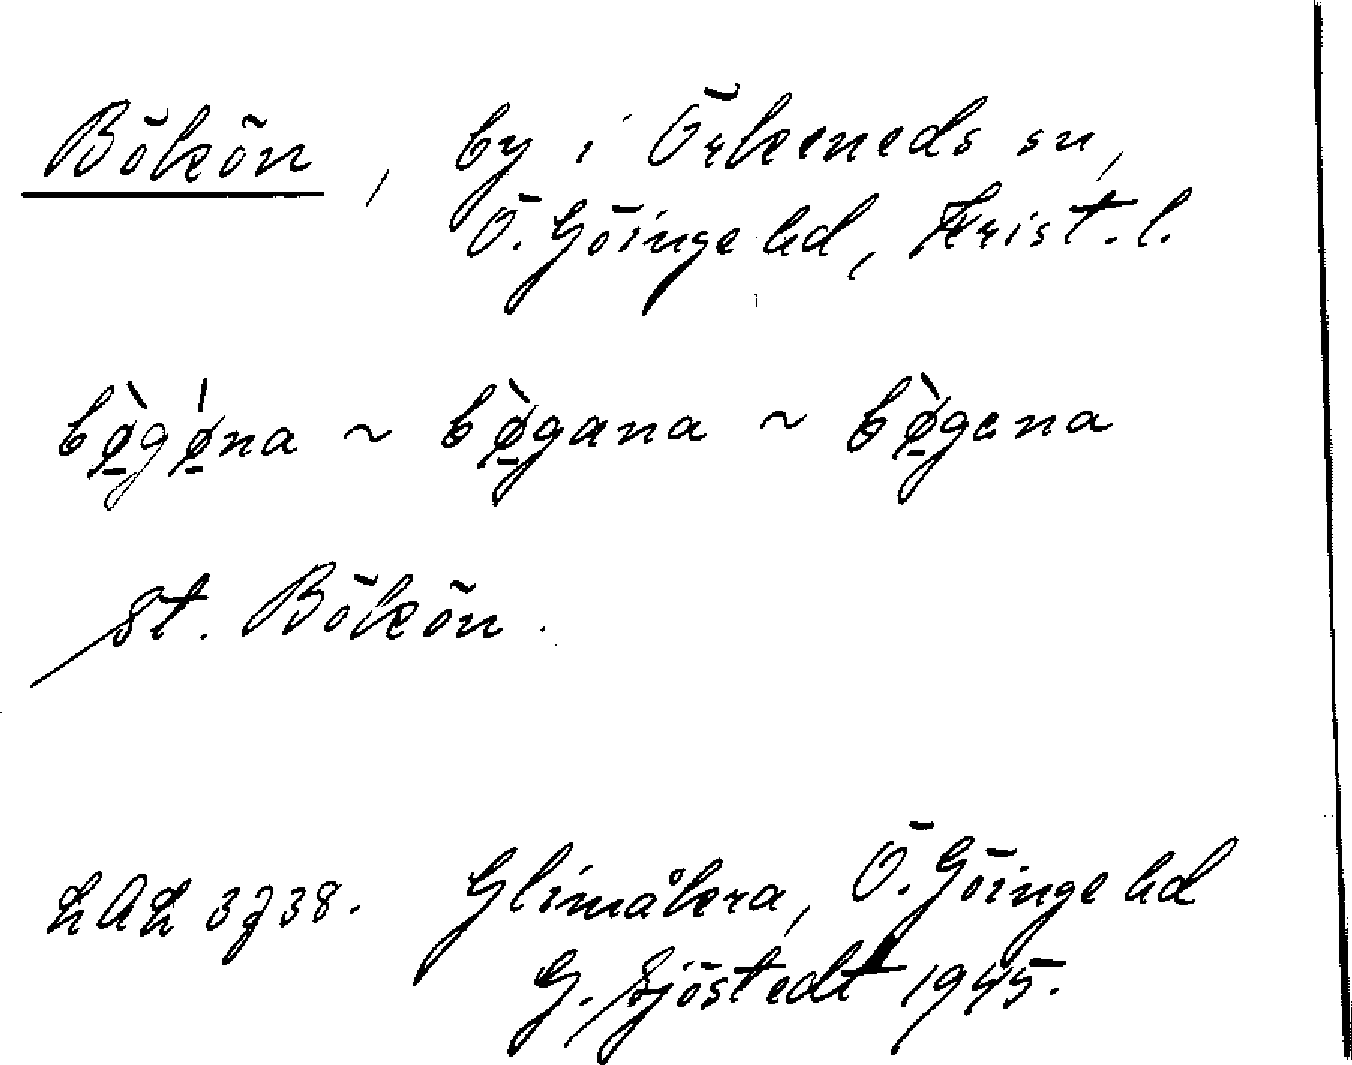 Bökön, by i Örkeneds sn,
Ö. Göinge hd, Krist. l.
bø̱̀gǿ̱na ~ bø̱̀gana ~ bø̱̀gena
St. Bökön.
LAL 3738. Glimåkra, Ö. Göinge hd
G. Sjöstedt 1945.